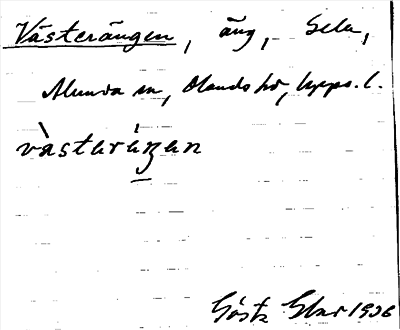 Västerängen, äng, Sela,
Alunda sn, Olands hd, Upps. l.
vàstaráŋan
Gösta Elar 1936